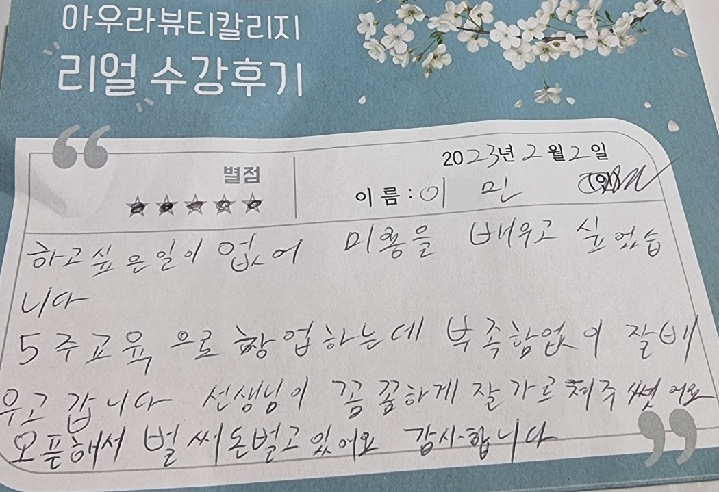 아우라뷰티칼리지
리얼 수강후기
별점
2023년 2월 2일
★★★★★
이름 : 이 민 (인)
하고싶은일이 없어 미용을 배우고 싶었습
니다
5주교육 으로 창업하는데 부족함없이 잘배
우고 갑니다 선생님이 꼼꼼하게 잘가르쳐주셨어요
오픈해서 벌써돈벌고있어요 감사합니다